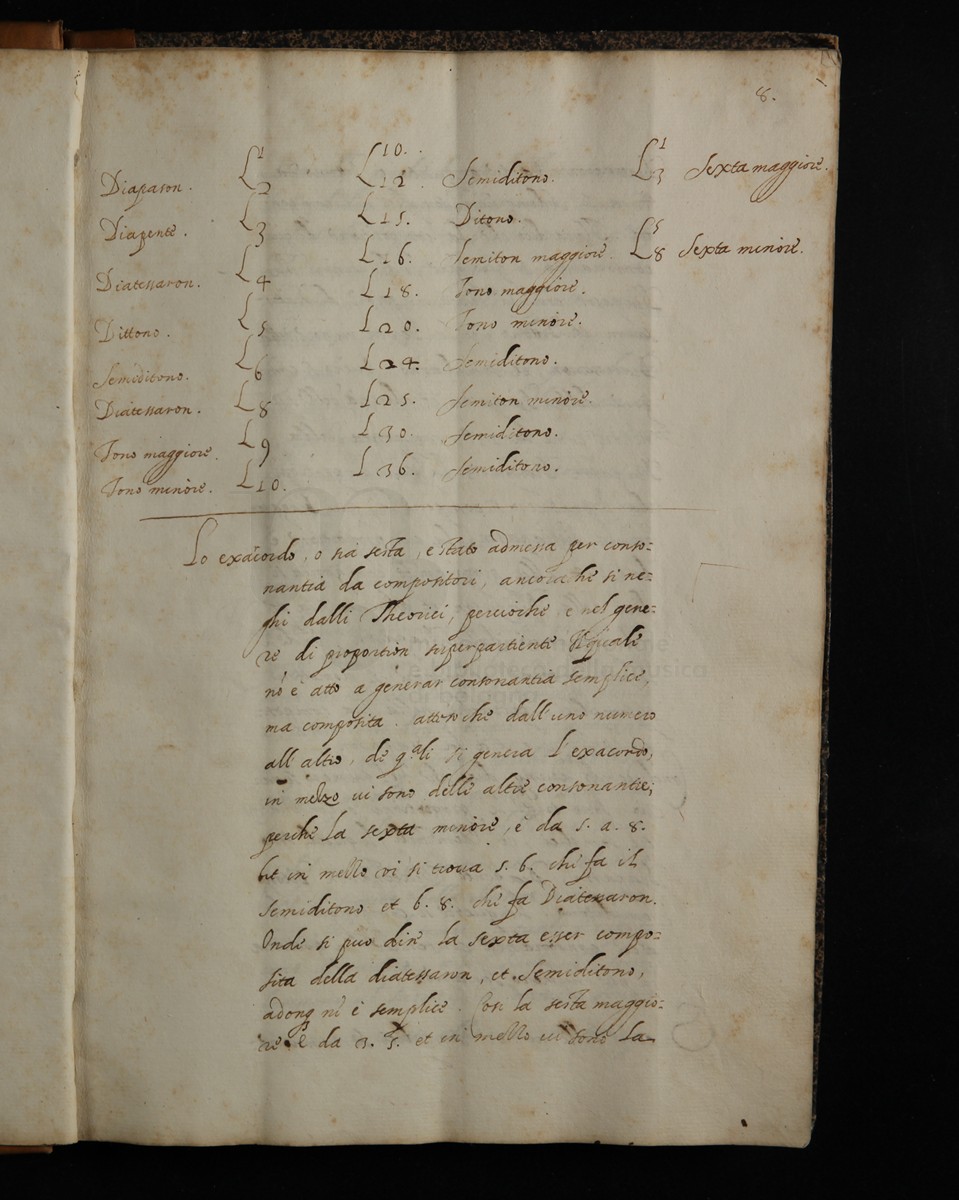 8.
Diapason. 1 2
Diapente. 3
Diatessaron. 4
Dittono. 5
Semiditono. 6
Diatessaron. 8
Tono maggiore. 9
Tono minore. 10.
10.
12. Semiditono.
15. Ditono.
16. Semiton maggiore.
18. Tono maggiore.
20. Tono minore.
24. Semiditono.
25. Semiton minore.
30. Semiditono.
36. Semiditono.
1 3 Sexta maggiore.
5 8 Sexta minore.
Lo exacordo, o sia sesta, e stato admessa per conso=
nantia da compositori, ancora che si ne=
ghi dalli Theorici, percioche e nel gene=
re di proportion superpartiente Il quale
nō è atto a generar consonantia semplice,
ma composita. attesoche dall uno numero
all altro, de q̄ali si genera l'exacordo,
in mezo ui sono delle altre consonantie;
perche la sexta minore, è da 5. a. 8.
et in mezzo vi si troua 5. 6. che fa il
Semiditono et 6. 8. che fa Diatessaron.
Onde si puo dire la sexta esser compo=
sita della diatessaron, et Semiditono,
adonq nō è semplice. Cosi la sesta maggio=
re è da 3. 5. et in mezzo ui sono la